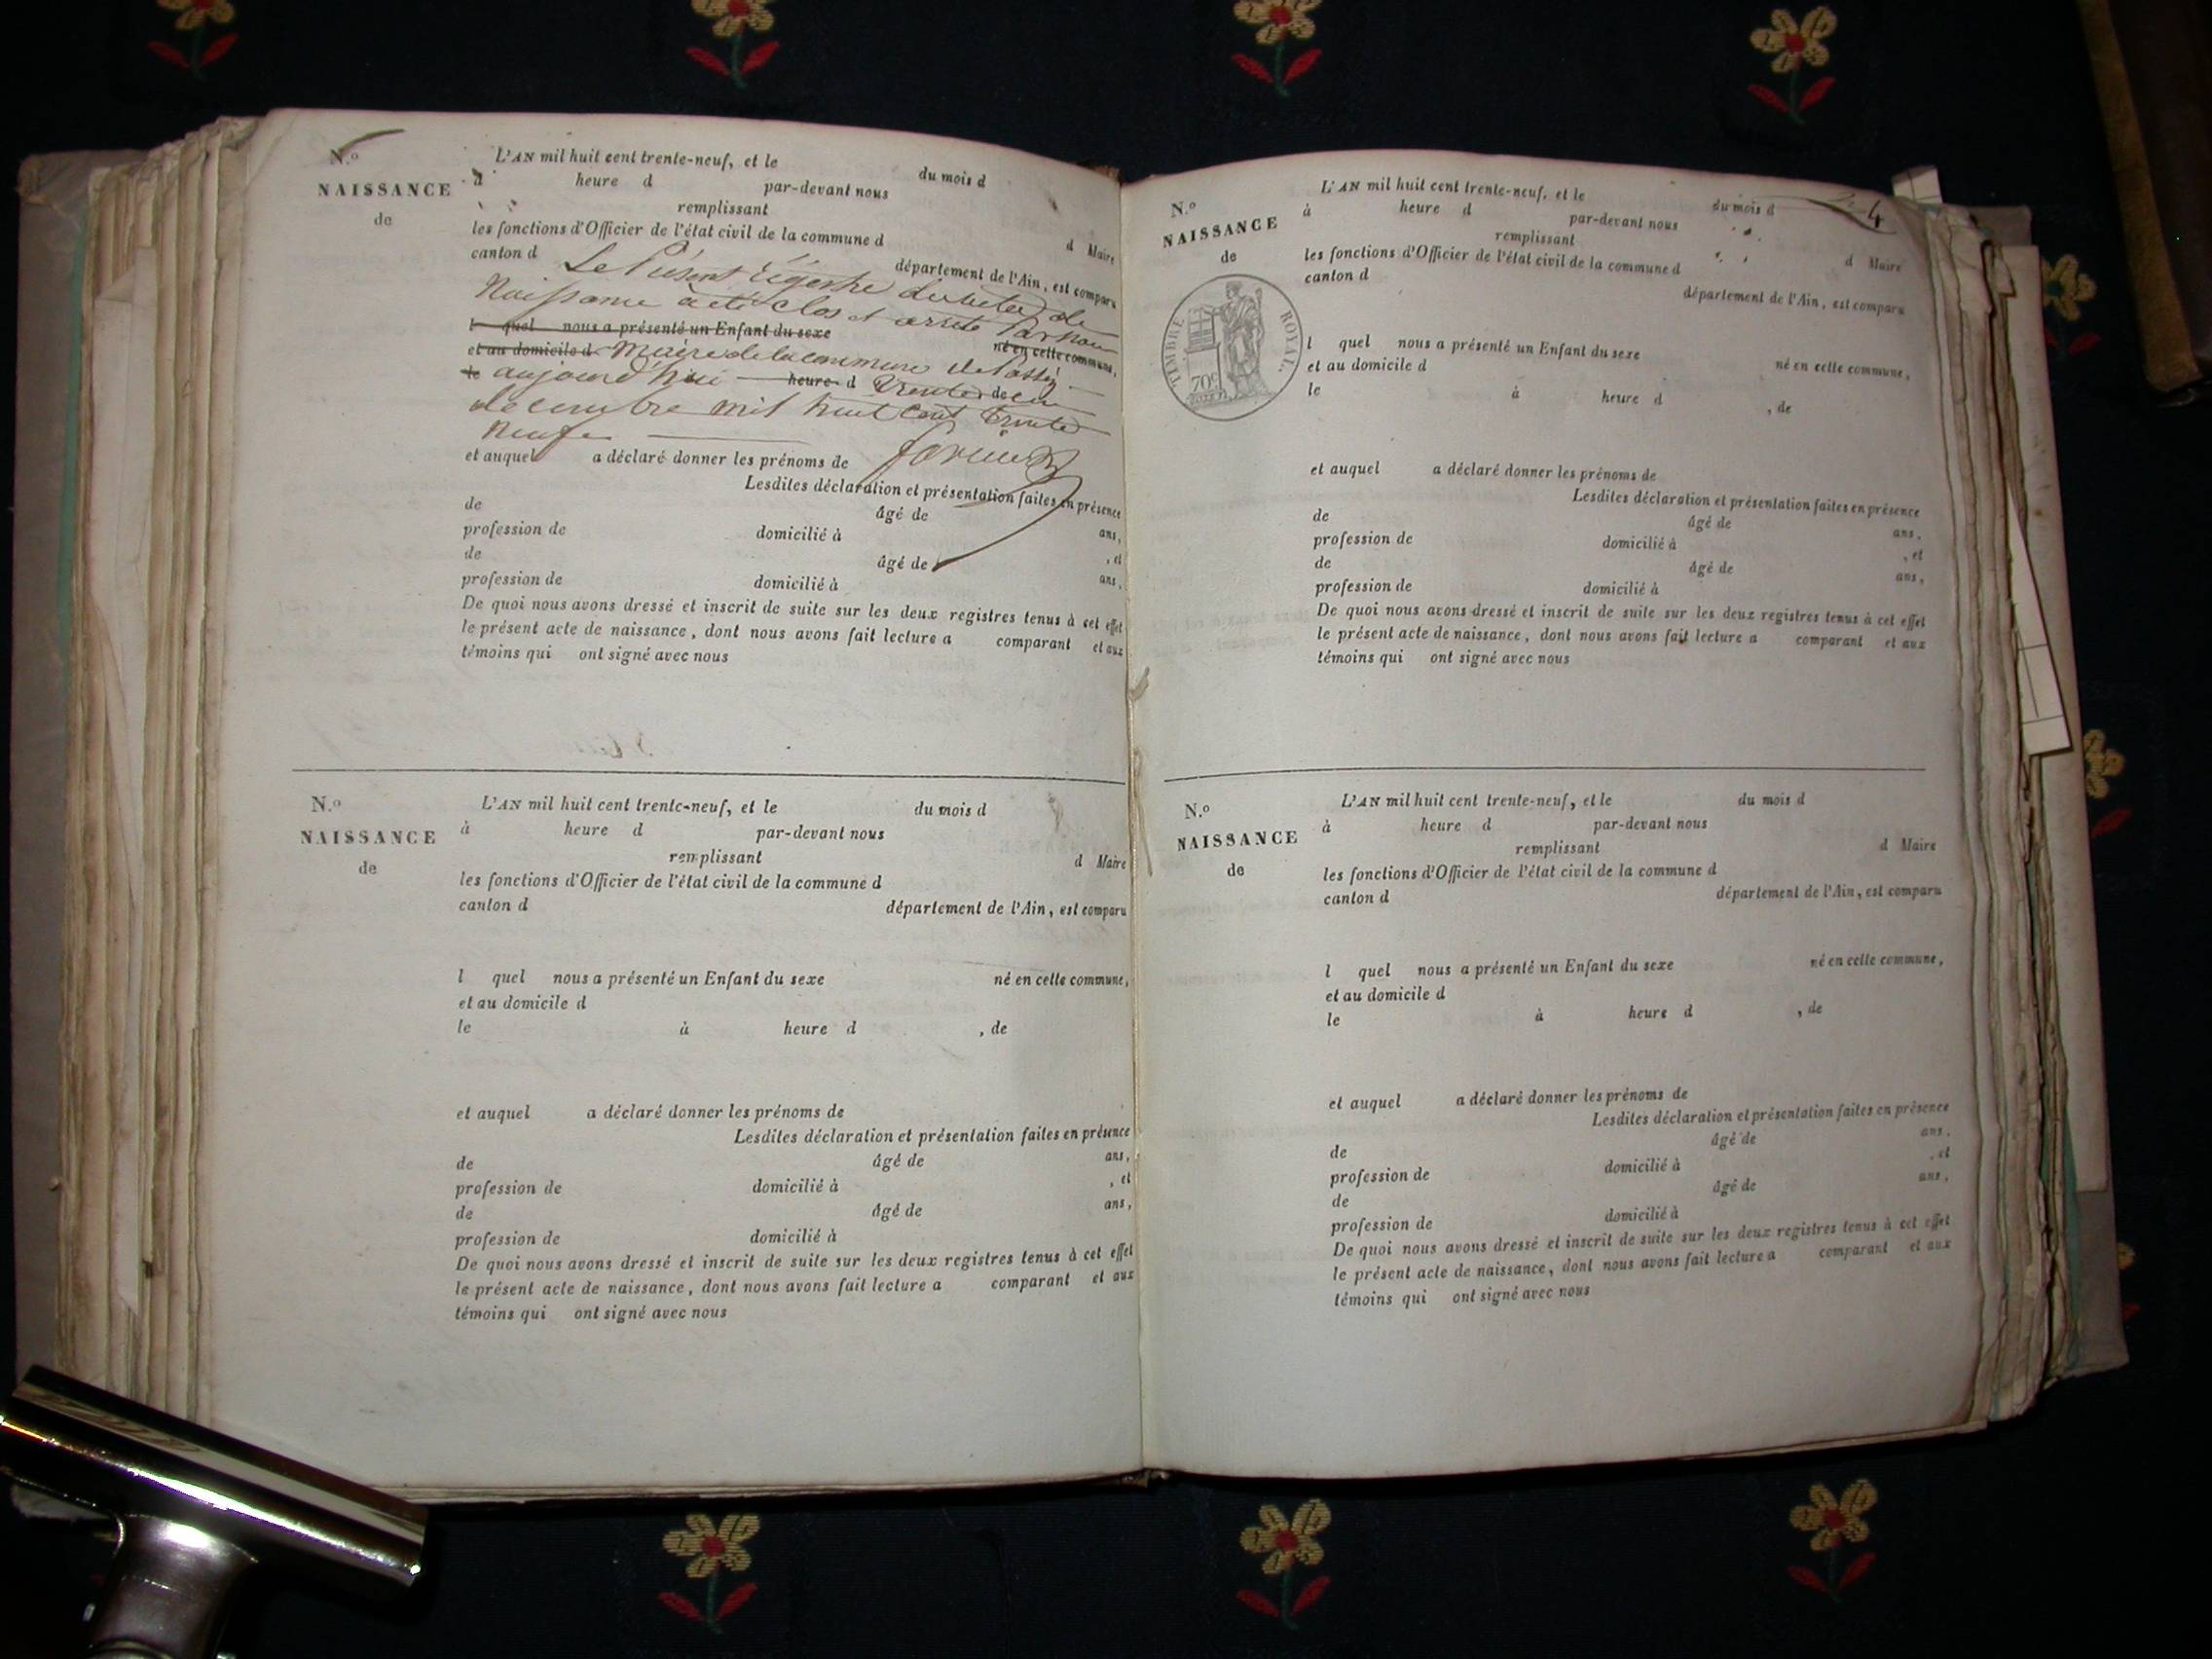 N.o
NAISSANCE
de
L'AN mil huit cent trente-neuf, et le du mois d
à heure d par-devant nous
remplissant d Maire
les fonctions d'Officier de l'état civil de la commune d
canton d département de l'Ain, est comparu
Le Présent Régistre des actes de
Naissance a été clos et arrêté Par nous
l quel nous a présenté un Enfant du sexe né en cette commune,
et au domicile d Maire de la commune de
le aujourd'hui heure d Trente de un
decembre mil huit Cent Trente
neuf
et auquel a déclaré donner les prénoms de
Lesdites déclaration et présentation faites en présence
de âgé de ans,
profession de domicilié à , et
de âgé de ans,
profession de domicilié à
De quoi nous avons dressé et inscrit de suite sur les deux registres tenus à cet effet
le présent acte de naissance, dont nous avons fait lecture a comparant et aux
témoins qui ont signé avec nous
N.o
NAISSANCE
de
L'AN mil huit cent trente-neuf, et le du mois d
à heure d par-devant nous
remplissant d Maire
les fonctions d'Officier de l'état civil de la commune d
canton d département de l'Ain, est comparu
l quel nous a présenté un Enfant du sexe né en cette commune,
et au domicile d
le à heure d , de
et auquel a déclaré donner les prénoms de
Lesdites déclaration et présentation faites en présence
de âgé de ans,
profession de domicilié à , et
de âgé de ans,
profession de domicilié à
De quoi nous avons dressé et inscrit de suite sur les deux registres tenus à cet effet
le présent acte de naissance, dont nous avons fait lecture a comparant et aux
témoins qui ont signé avec nous
4
N.o
NAISSANCE
de
TIMBRE ROYAL.
70c
L'AN mil huit cent trente-neuf, et le du mois d
à heure d par-devant nous
remplissant d Maire
les fonctions d'Officier de l'état civil de la commune d
canton d département de l'Ain, est comparu
l quel nous a présenté un Enfant du sexe né en cette commune,
et au domicile d
le à heure d , de
et auquel a déclaré donner les prénoms de
Lesdites déclaration et présentation faites en présence
de âgé de ans,
profession de domicilié à , et
de âgé de ans,
profession de domicilié à
De quoi nous avons dressé et inscrit de suite sur les deux registres tenus à cet effet
le présent acte de naissance, dont nous avons fait lecture a comparant et aux
témoins qui ont signé avec nous
N.o
NAISSANCE
de
L'AN mil huit cent trente-neuf, et le du mois d
à heure d par-devant nous
remplissant d Maire
les fonctions d'Officier de l'état civil de la commune d
canton d département de l'Ain, est comparu
l quel nous a présenté un Enfant du sexe né en cette commune,
et au domicile d
le à heure d , de
et auquel a déclaré donner les prénoms de
Lesdites déclaration et présentation faites en présence
de âgé de ans,
profession de domicilié à , et
de âgé de ans,
profession de domicilié à
De quoi nous avons dressé et inscrit de suite sur les deux registres tenus à cet effet
le présent acte de naissance, dont nous avons fait lecture a comparant et aux
témoins qui ont signé avec nous